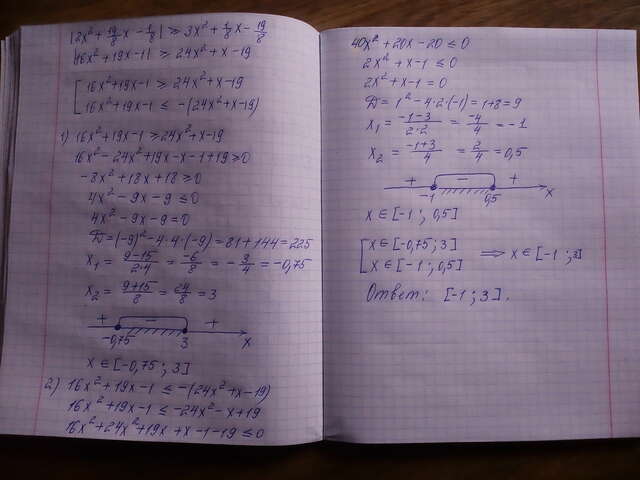 |2x² + 19/8 x - 1/8| ≥ 3x² + 1/8 x - 19/8
|16x² + 19x - 1| ≥ 24x² + x - 19
[ 16x² + 19x - 1 ≥ 24x² + x - 19
[ 16x² + 19x - 1 ≤ -(24x² + x - 19)
1) 16x² + 19x - 1 ≥ 24x² + x - 19
16x² - 24x² + 19x - x - 1 + 19 ≥ 0
-8x² + 18x + 18 ≥ 0
4x² - 9x - 9 ≤ 0
4x² - 9x - 9 = 0
D = (-9)² - 4·4·(-9) = 81 + 144 = 225
x₁ = (9-15)/(2·4) = -6/8 = -3/4 = -0,75
x₂ = (9+15)/8 = 24/8 = 3
+ - +
-0,75 3 x
x ∈ [-0,75 ; 3]
2) 16x² + 19x - 1 ≤ -(24x² + x - 19)
16x² + 19x - 1 ≤ -24x² - x + 19
16x² + 24x² + 19x + x - 1 - 19 ≤ 0
40x² + 20x - 20 ≤ 0
2x² + x - 1 ≤ 0
2x² + x - 1 = 0
D = 1² - 4·2·(-1) = 1 + 8 = 9
x₁ = (-1-3)/(2·2) = -4/4 = -1
x₂ = (-1+3)/4 = 2/4 = 0,5
+ - +
-1 0,5 x
x ∈ [-1 ; 0,5]
[ x ∈ [-0,75 ; 3]
[ x ∈ [-1 ; 0,5] ⟹ x ∈ [-1 ; 3]
Ответ: [-1 ; 3].